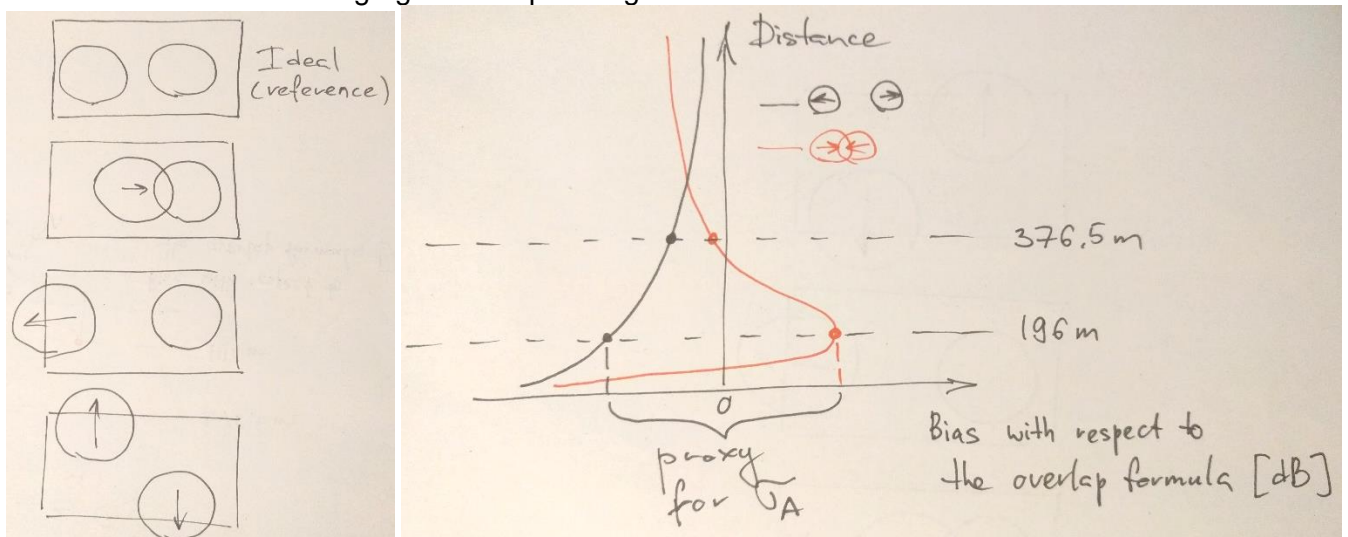 Ideal
(reference)
Distance
376.5m
196m
0
proxy
for σA
Bias with respect to
the overlap formula [dB]